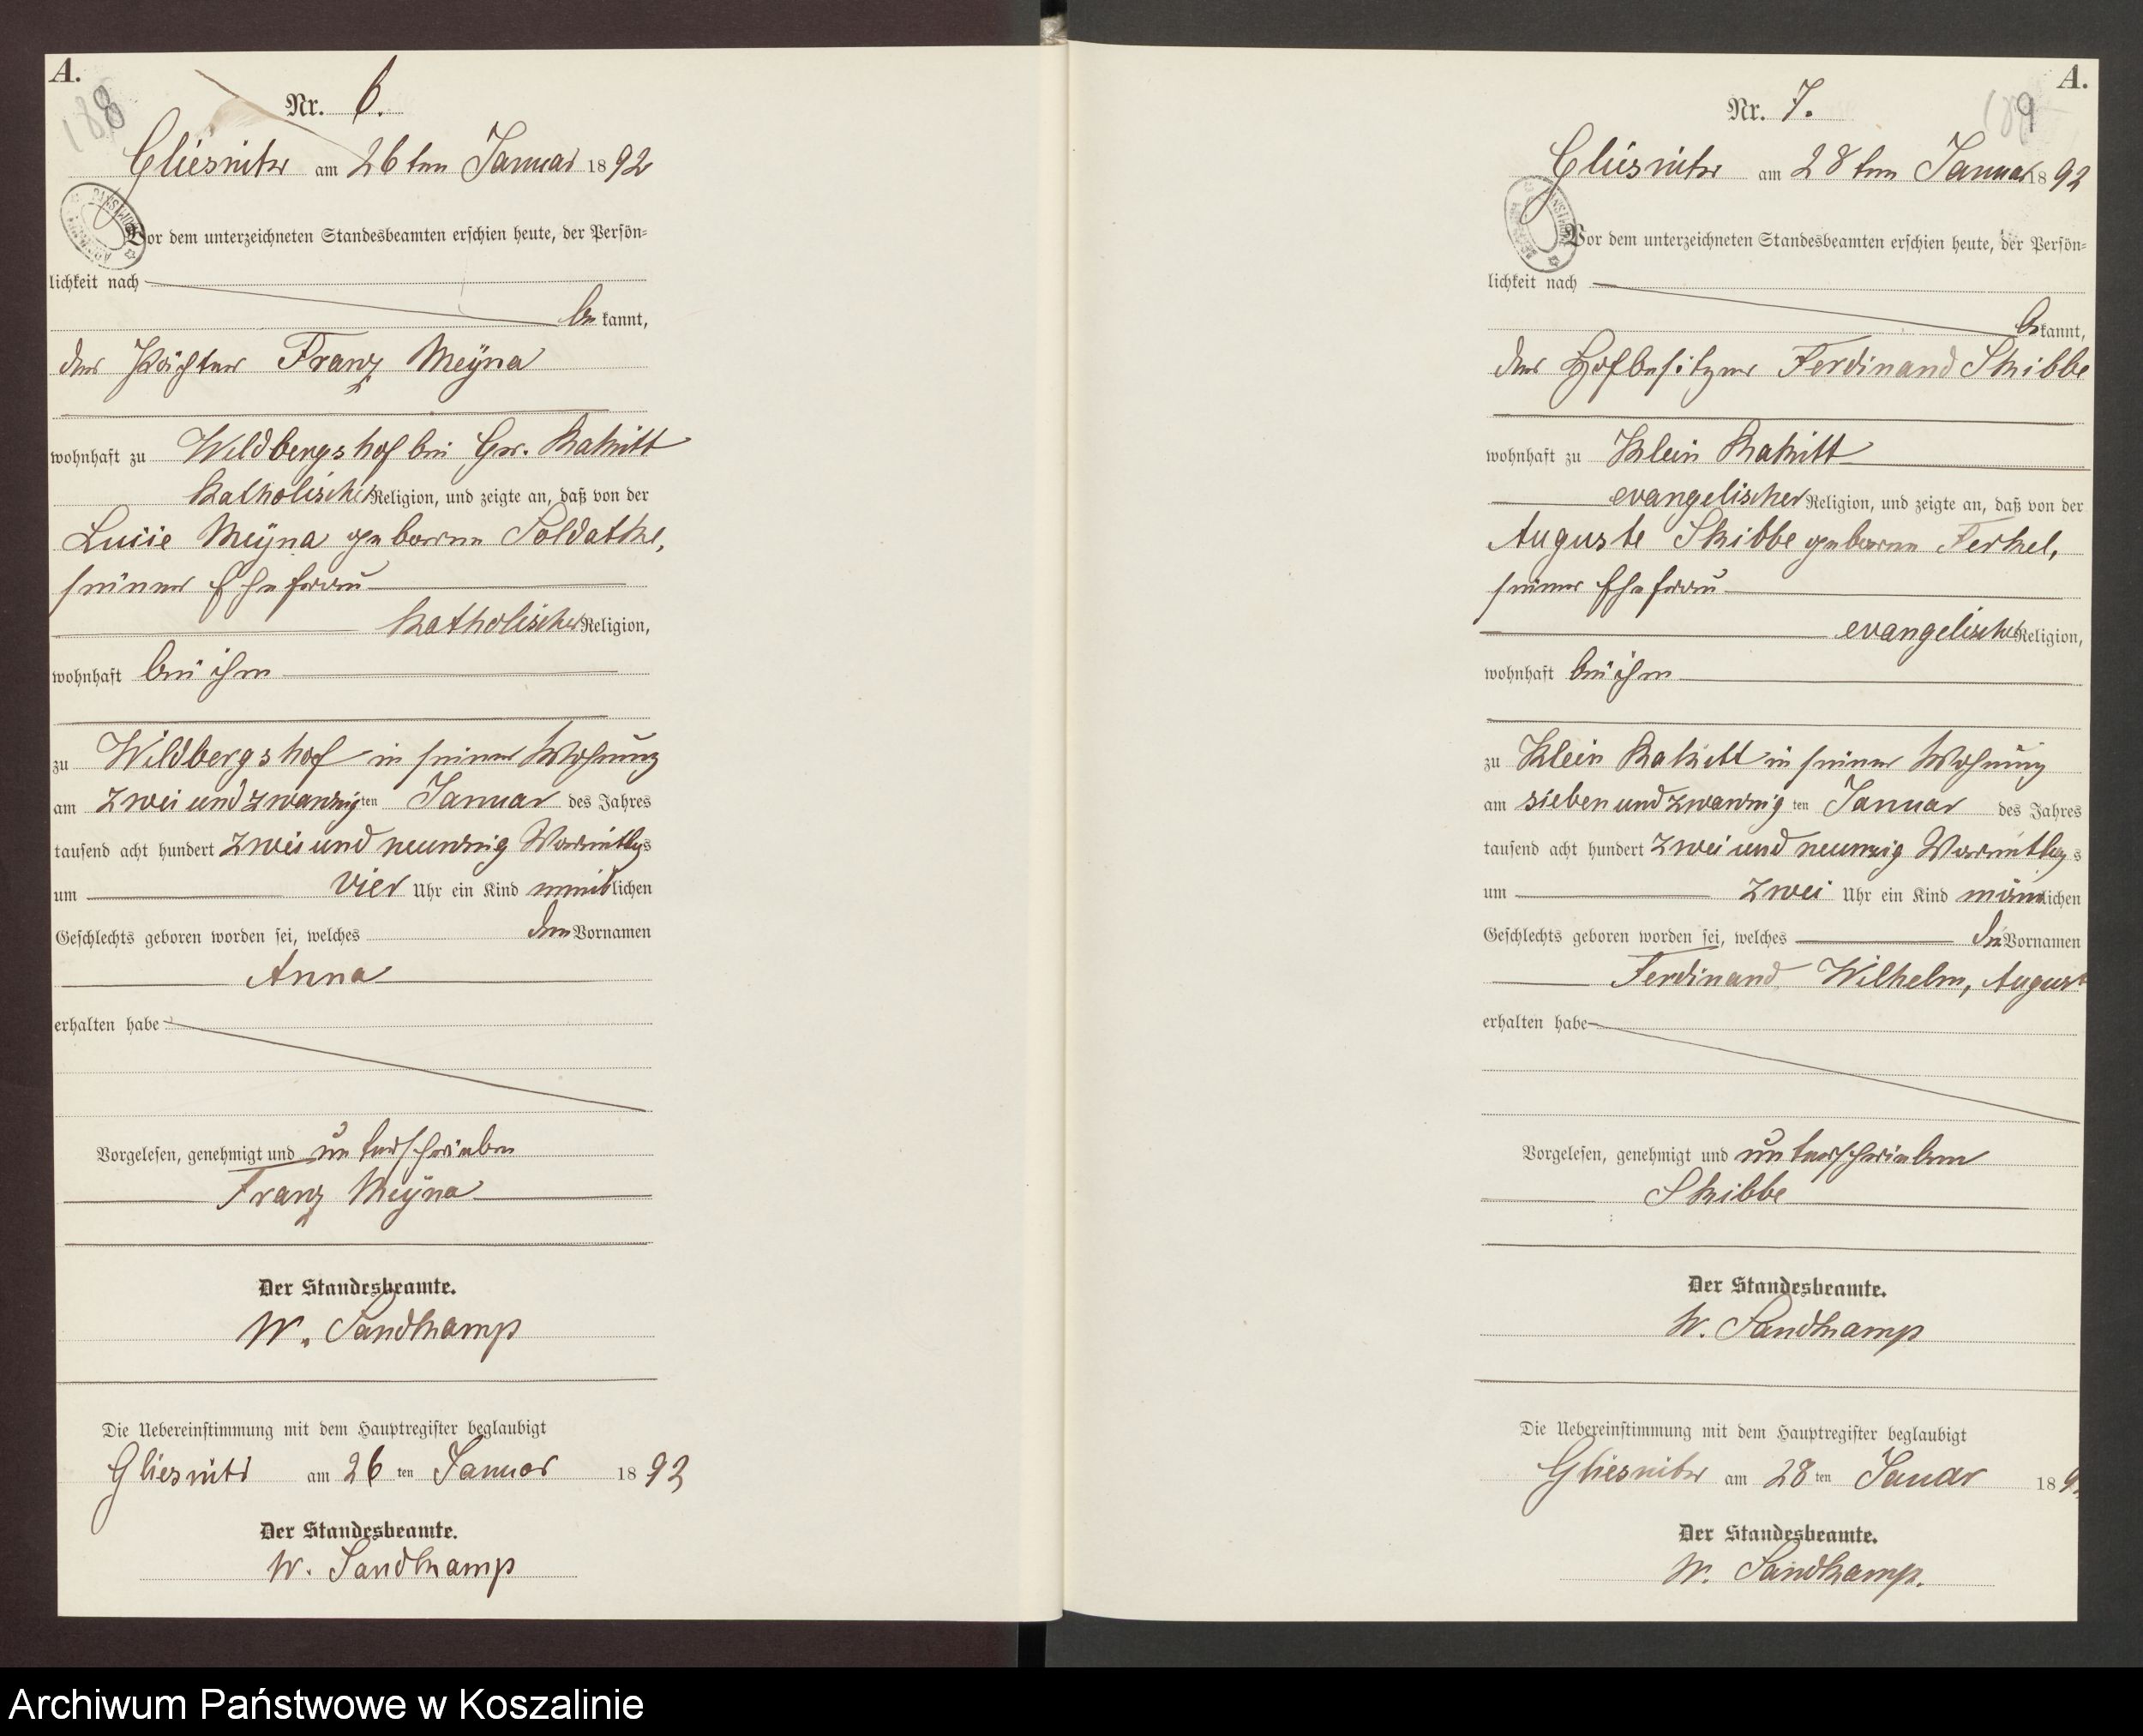 A.
188
Nr. 6.
Gliesnitz am 26ten Januar 1892
Vor dem unterzeichneten Standesbeamten erschien heute, der Persön-
lichkeit nach
bekannt,
der Pächter Franz Meÿna
wohnhaft zu Wildbergshof bei Gr. Rakitt
katholischer Religion, und zeigte an, daß von der
Lucie Meÿna geborene Soldatke,
seiner Ehefrau
katholischer Religion,
wohnhaft bei ihm
zu Wildbergshof in seiner Wohnung
am zwei und zwanzigten Januar des Jahres
tausend acht hundert zwei und neunzig Vormittags
um vier Uhr ein Kind weiblichen
Geschlechts geboren worden sei, welches den Vornamen
Anna
erhalten habe
Vorgelesen, genehmigt und unterschrieben
Franz Meÿna
Der Standesbeamte.
W. Sandkamp
Die Uebereinstimmung mit dem Hauptregister beglaubigt
Gliesnitz am 26ten Januar 1892
Der Standesbeamte.
W. Sandkamp
A.
189
Nr. 7.
Gliesnitz am 28ten Januar 1892
Vor dem unterzeichneten Standesbeamten erschien heute, der Persön-
lichkeit nach
bekannt,
der Hofbesitzer Ferdinand Skibbe
wohnhaft zu Klein Rakitt
evangelischer Religion, und zeigte an, daß von der
Auguste Skibbe geborene Ferkel,
seiner Ehefrau
evangelischer Religion,
wohnhaft bei ihm
zu Klein Rakitt in seiner Wohnung
am sieben und zwanzigten Januar des Jahres
tausend acht hundert zwei und neunzig Vormittags
um zwei Uhr ein Kind männlichen
Geschlechts geboren worden sei, welches die Vornamen
Ferdinand Wilhelm, August
erhalten habe
Vorgelesen, genehmigt und unterschrieben
Skibbe
Der Standesbeamte.
W. Sandkamp
Die Uebereinstimmung mit dem Hauptregister beglaubigt
Gliesnitz am 28ten Januar 189
Der Standesbeamte.
W. Sandkamp.
Archiwum Państwowe w Koszalinie